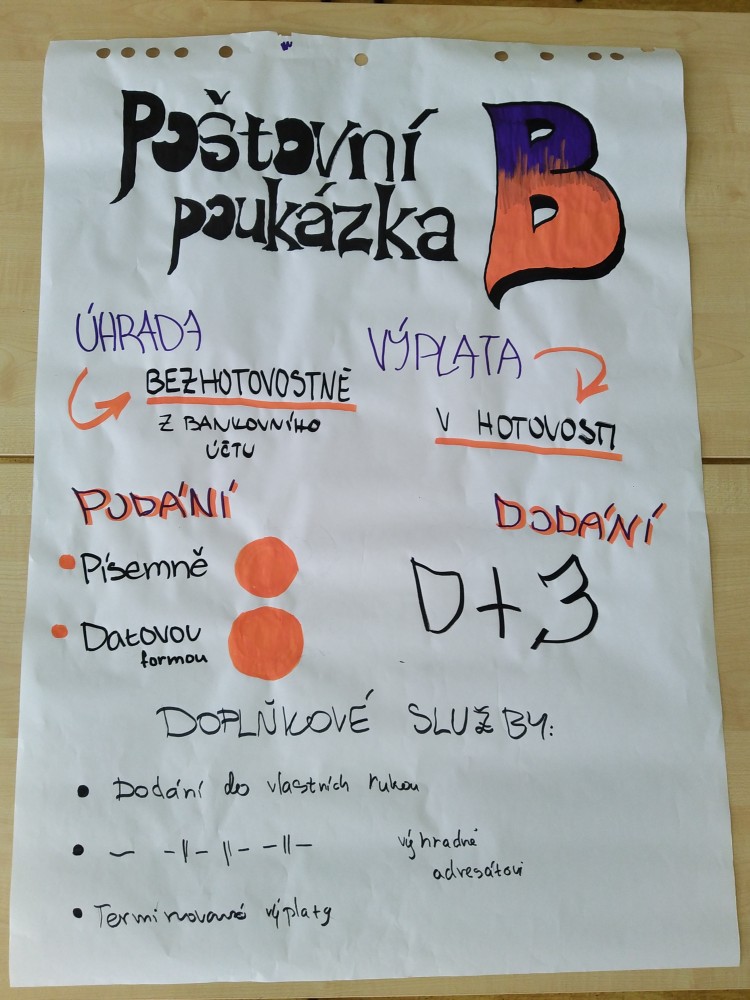 Poštovní
poukázka
B
ÚHRADA
BEZHOTOVOSTNĚ
Z BANKOVNÍHO
ÚČTU
VÝPLATA
V HOTOVOSTI
PODÁNÍ
Písemně
Datovou
formou
DODÁNÍ
D+3
DOPLŇKOVÉ SLUŽBY:
• Dodání do vlastních rukou
• — -||- -||- -||- výhradně
adresátovi
• Terminované výplaty